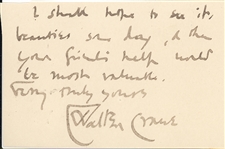 I should hope to see its
beauties some day, & then
your friend's help would
be most valuable.
Very truly yours
Walter Crane